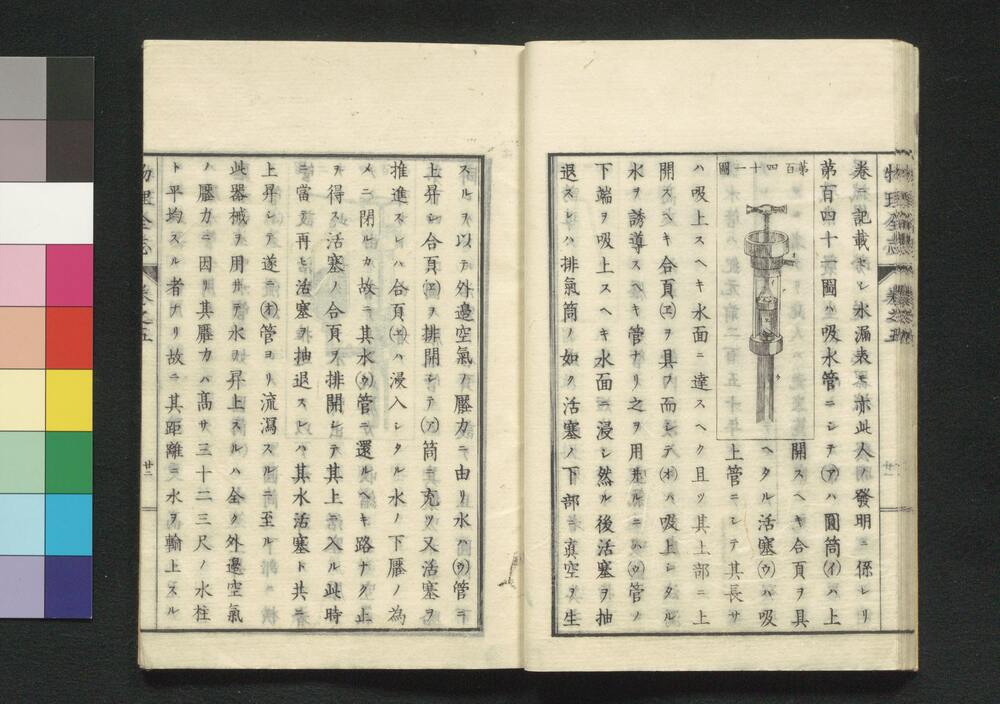 卷ニ記載セシ水漏表モ亦此人ノ發明ニ係レリ
第百四十一圖ハ吸水管ニシテ㋐ハ圓筒㋑ハ上
第百四十一圖
開スヘキ合頁ヲ具
ヘタル活塞㋒ハ吸
上管ニシテ其長サ
ハ吸上スヘキ水面ニ達スヘク且ツ其上部ニ上
開スヘキ合頁㋓ヲ具フ而シテ㋔ハ吸上シタル
水ヲ誘導スヘキ管ナリ之ヲ用井ルニハ㋒管ノ
下端ヲ吸上スヘキ水面ニ浸シ然ル後活塞ヲ抽
退スレハ排氣筒ノ如ク活塞ノ下部真空ヲ生
スルヲ以テ外邊空氣ノ壓力ニ由リ水ハ㋒管ニ
上昇シ合頁㋓ヲ排開シテ㋐筒ニ充ツ又活塞ヲ
推進スレハ合頁㋓ハ浸入シタル水ノ下壓ノ為
メニ閉ルカ故ニ其水㋒管ニ還ルヘキ路ナク止
ヲ得ス活塞ノ合頁ヲ排開シテ其上ニ入ル此時
ニ當テ再ヒ活塞ヲ抽退スレハ其水活塞ト共ニ
上昇シテ遂ニ㋔管ヨリ流瀉スルニ至ル
此器械ヲ用井テ水ヲ昇上スルハ全ク外邊空氣
ノ壓力ニ因リ其壓力ハ髙サ三十二三尺ノ水柱
ト平均スル者ナリ故ニ其距離ニ水ヲ輸上スル
物理全志
卷之五
廿二